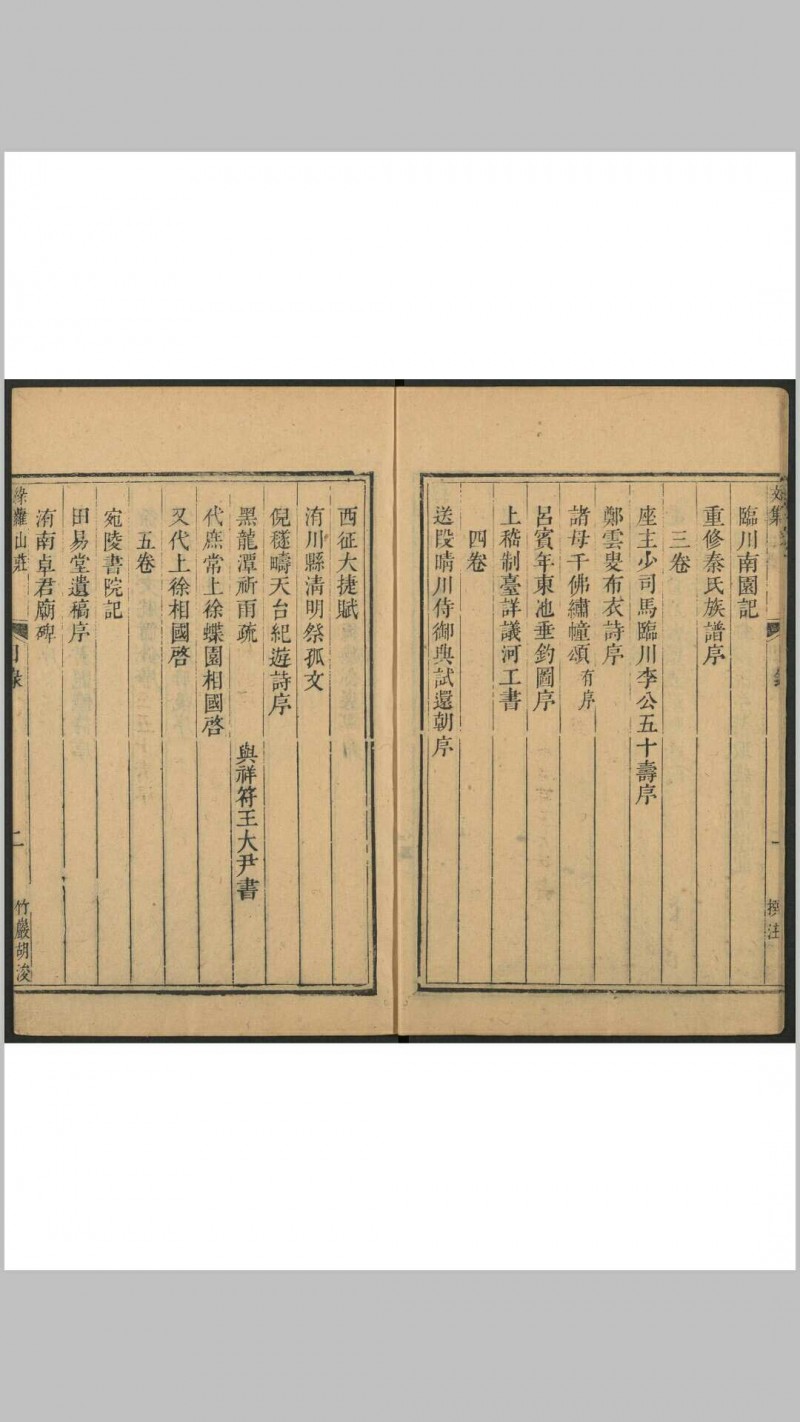 文集
一
撰注
臨川南園記
重修秦氏族譜序
三卷
座主少司馬臨川李公五十壽序
鄭雲叟布衣詩序
諸母千佛繡幢頌有序
呂賓年東池垂釣圖序
上嵇制臺詳議河工書
四卷
送段晴川侍御典試還朝序
西征大捷賦
洧川縣淸明祭孤文
倪穟疇天台紀遊詩序
黑龍潭祈雨疏 與祥符王大尹書
代庶常上徐蝶園相國啓
又代上徐相國啓
五卷
宛陵書院記
田易堂遺稿序
洧南卓君廟碑
綠蘿山莊
目錄
二
竹巖胡浚